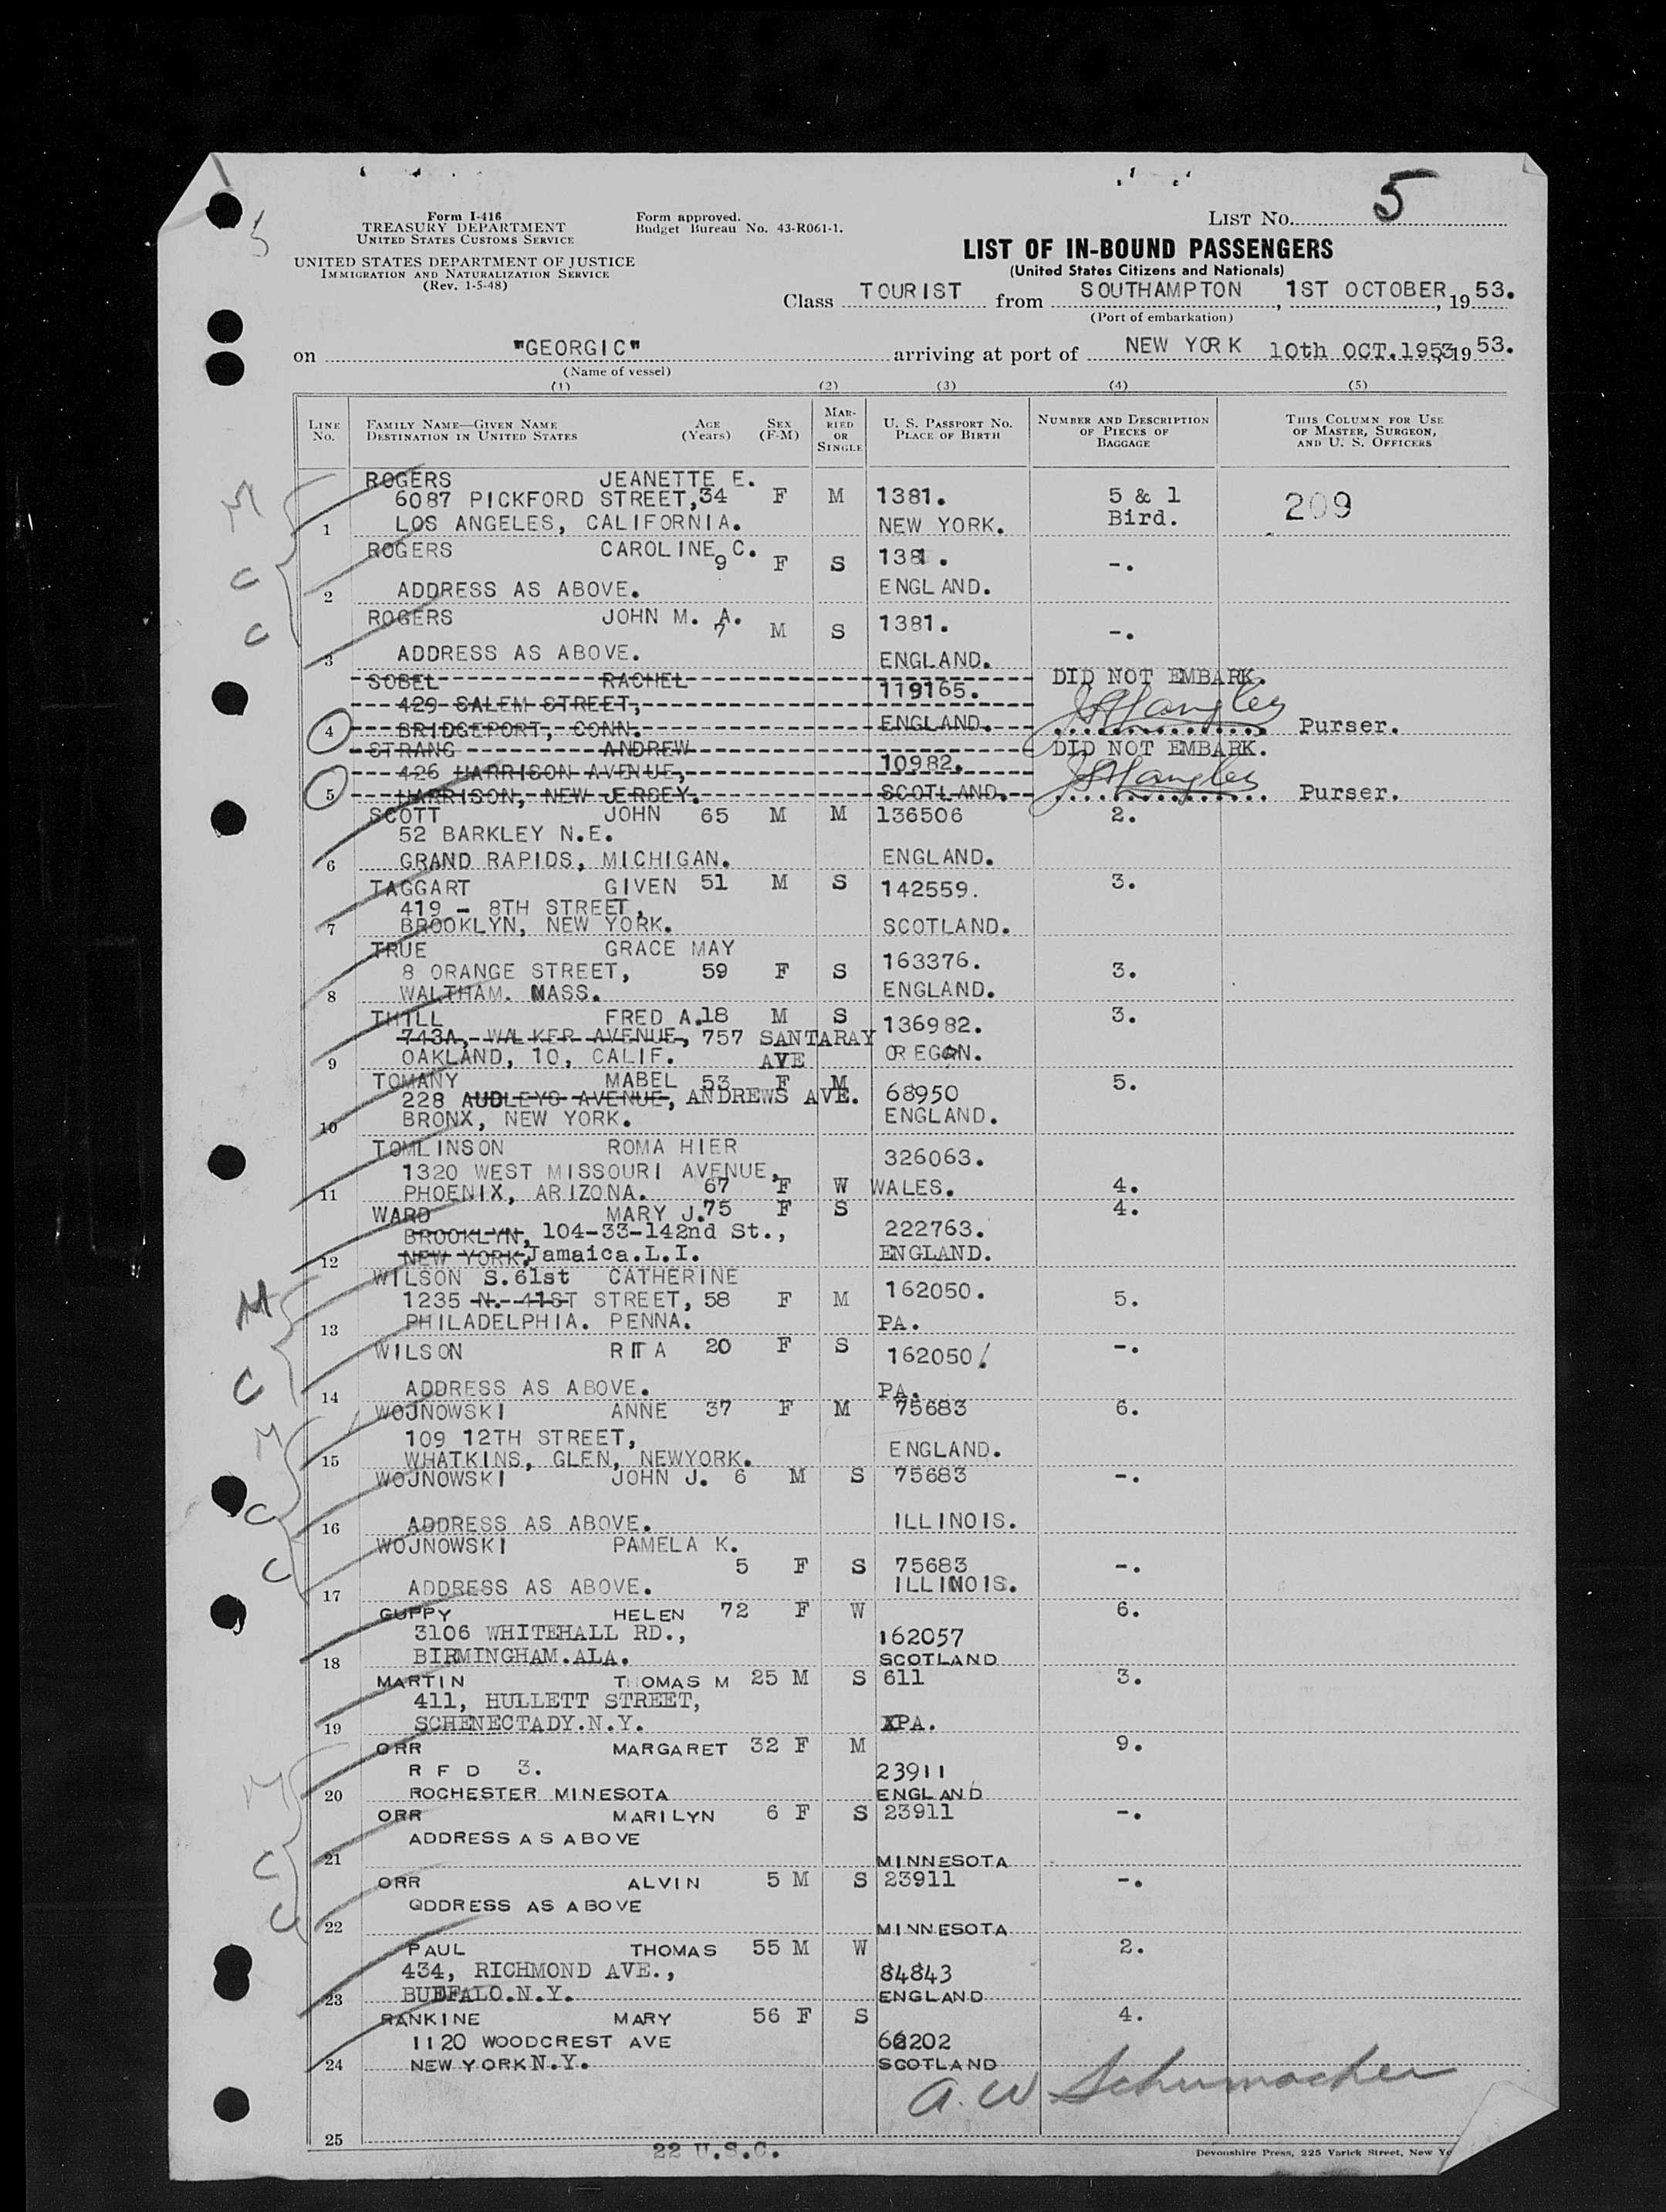 5
5
Form I-416
TREASURY DEPARTMENT
UNITED STATES CUSTOMS SERVICE
UNITED STATES DEPARTMENT OF JUSTICE
IMMIGRATION AND NATURALIZATION SERVICE
(Rev. 1-5-48)
Form approved.
Budget Bureau No. 43-R061-1.
LIST NO. 5
LIST OF IN-BOUND PASSENGERS
(United States Citizens and Nationals)
Class TOURIST from SOUTHAMPTON, 1ST OCTOBER, 19 53.
(Port of embarkation)
on "GEORGIC" arriving at port of NEW YORK 10th OCT.1953, 19 53.
(Name of vessel)
(1) (2) (3) (4) (5)
LINE NO. FAMILY NAME—GIVEN NAME DESTINATION IN UNITED STATES AGE (Years) SEX (F-M) MARRIED OR SINGLE U. S. PASSPORT NO. PLACE OF BIRTH NUMBER AND DESCRIPTION OF PIECES OF BAGGAGE THIS COLUMN FOR USE OF MASTER, SURGEON, AND U. S. OFFICERS
M ROGERS JEANETTE E.
6087 PICKFORD STREET, 34 F M 1381. 5 & 1 209
1 LOS ANGELES, CALIFORNIA. NEW YORK. Bird.
C ROGERS CAROLINE C. 9 F S 1381. -.
2 ADDRESS AS ABOVE. ENGLAND.
C ROGERS JOHN M. A. 7 M S 1381. -.
3 ADDRESS AS ABOVE. ENGLAND.
SOBEL RACHEL 119165. DID NOT EMBARK.
429 SALEM STREET,
4 BRIDGEPORT, CONN. ENGLAND. Purser.
STRANG ANDREW DID NOT EMBARK.
426 HARRISON AVENUE, 10982.
5 HARRISON, NEW JERSEY. SCOTLAND. Purser.
SCOTT JOHN 65 M M 136506 2.
52 BARKLEY N.E.
6 GRAND RAPIDS, MICHIGAN. ENGLAND.
TAGGART GIVEN 51 M S 142559. 3.
419 - 8TH STREET,
7 BROOKLYN, NEW YORK. SCOTLAND.
TRUE GRACE MAY 163376.
8 ORANGE STREET, 59 F S 3.
8 WALTHAM. MASS. ENGLAND.
THILL FRED A. 18 M S 136982. 3.
743A, WALKER AVENUE, 757 SANTARAY
9 OAKLAND, 10, CALIF. AVE OREGON.
TOMANY MABEL 53 F M 68950 5.
228 AUDLEYS AVENUE, ANDREWS AVE.
10 BRONX, NEW YORK. ENGLAND.
TOMLINSON ROMA HIER 326063.
1320 WEST MISSOURI AVENUE,
11 PHOENIX, ARIZONA. 67 F W WALES. 4.
WARD MARY J. 75 F S 222763. 4.
BROOKLYN, 104-33-142nd St.,
12 NEW YORK. Jamaica.L.I. ENGLAND.
M WILSON S.61st CATHERINE 162050.
1235 N. 41ST STREET, 58 F M 5.
13 PHILADELPHIA. PENNA. PA.
WILSON RITA 20 F S 162050. -.
C 14 ADDRESS AS ABOVE. PA.
M WOJNOWSKI ANNE 37 F M 75683 6.
109 12TH STREET,
15 WHATKINS, GLEN, NEWYORK. ENGLAND.
C WOJNOWSKI JOHN J. 6 M S 75683 -.
16 ADDRESS AS ABOVE. ILLINOIS.
C WOJNOWSKI PAMELA K. 5 F S 75683 -.
17 ADDRESS AS ABOVE. ILLINOIS.
GUPPY HELEN 72 F W 6.
3106 WHITEHALL RD., 162057
18 BIRMINGHAM.ALA. SCOTLAND
MARTIN THOMAS M 25 M S 611 3.
411, HULLETT STREET,
19 SCHENECTADY.N.Y. PA.
M ORR MARGARET 32 F M 9.
R F D 3. 23911
20 ROCHESTER MINESOTA ENGLAND
ORR MARILYN 6 F S 23911 -.
C ADDRESS AS ABOVE
21 MINNESOTA
ORR ALVIN 5 M S 23911 -.
C QDDRESS AS ABOVE
22 MINNESOTA
PAUL THOMAS 55 M W 2.
434, RICHMOND AVE., 84843
23 BUFFALO.N.Y. ENGLAND
RANKINE MARY 56 F S 4.
1120 WOODCREST AVE
24 NEW YORK N.Y. SCOTLAND
A. W Schumacher
25
22 U.S.C.
Devonshire Press, 225 Varick Street, New